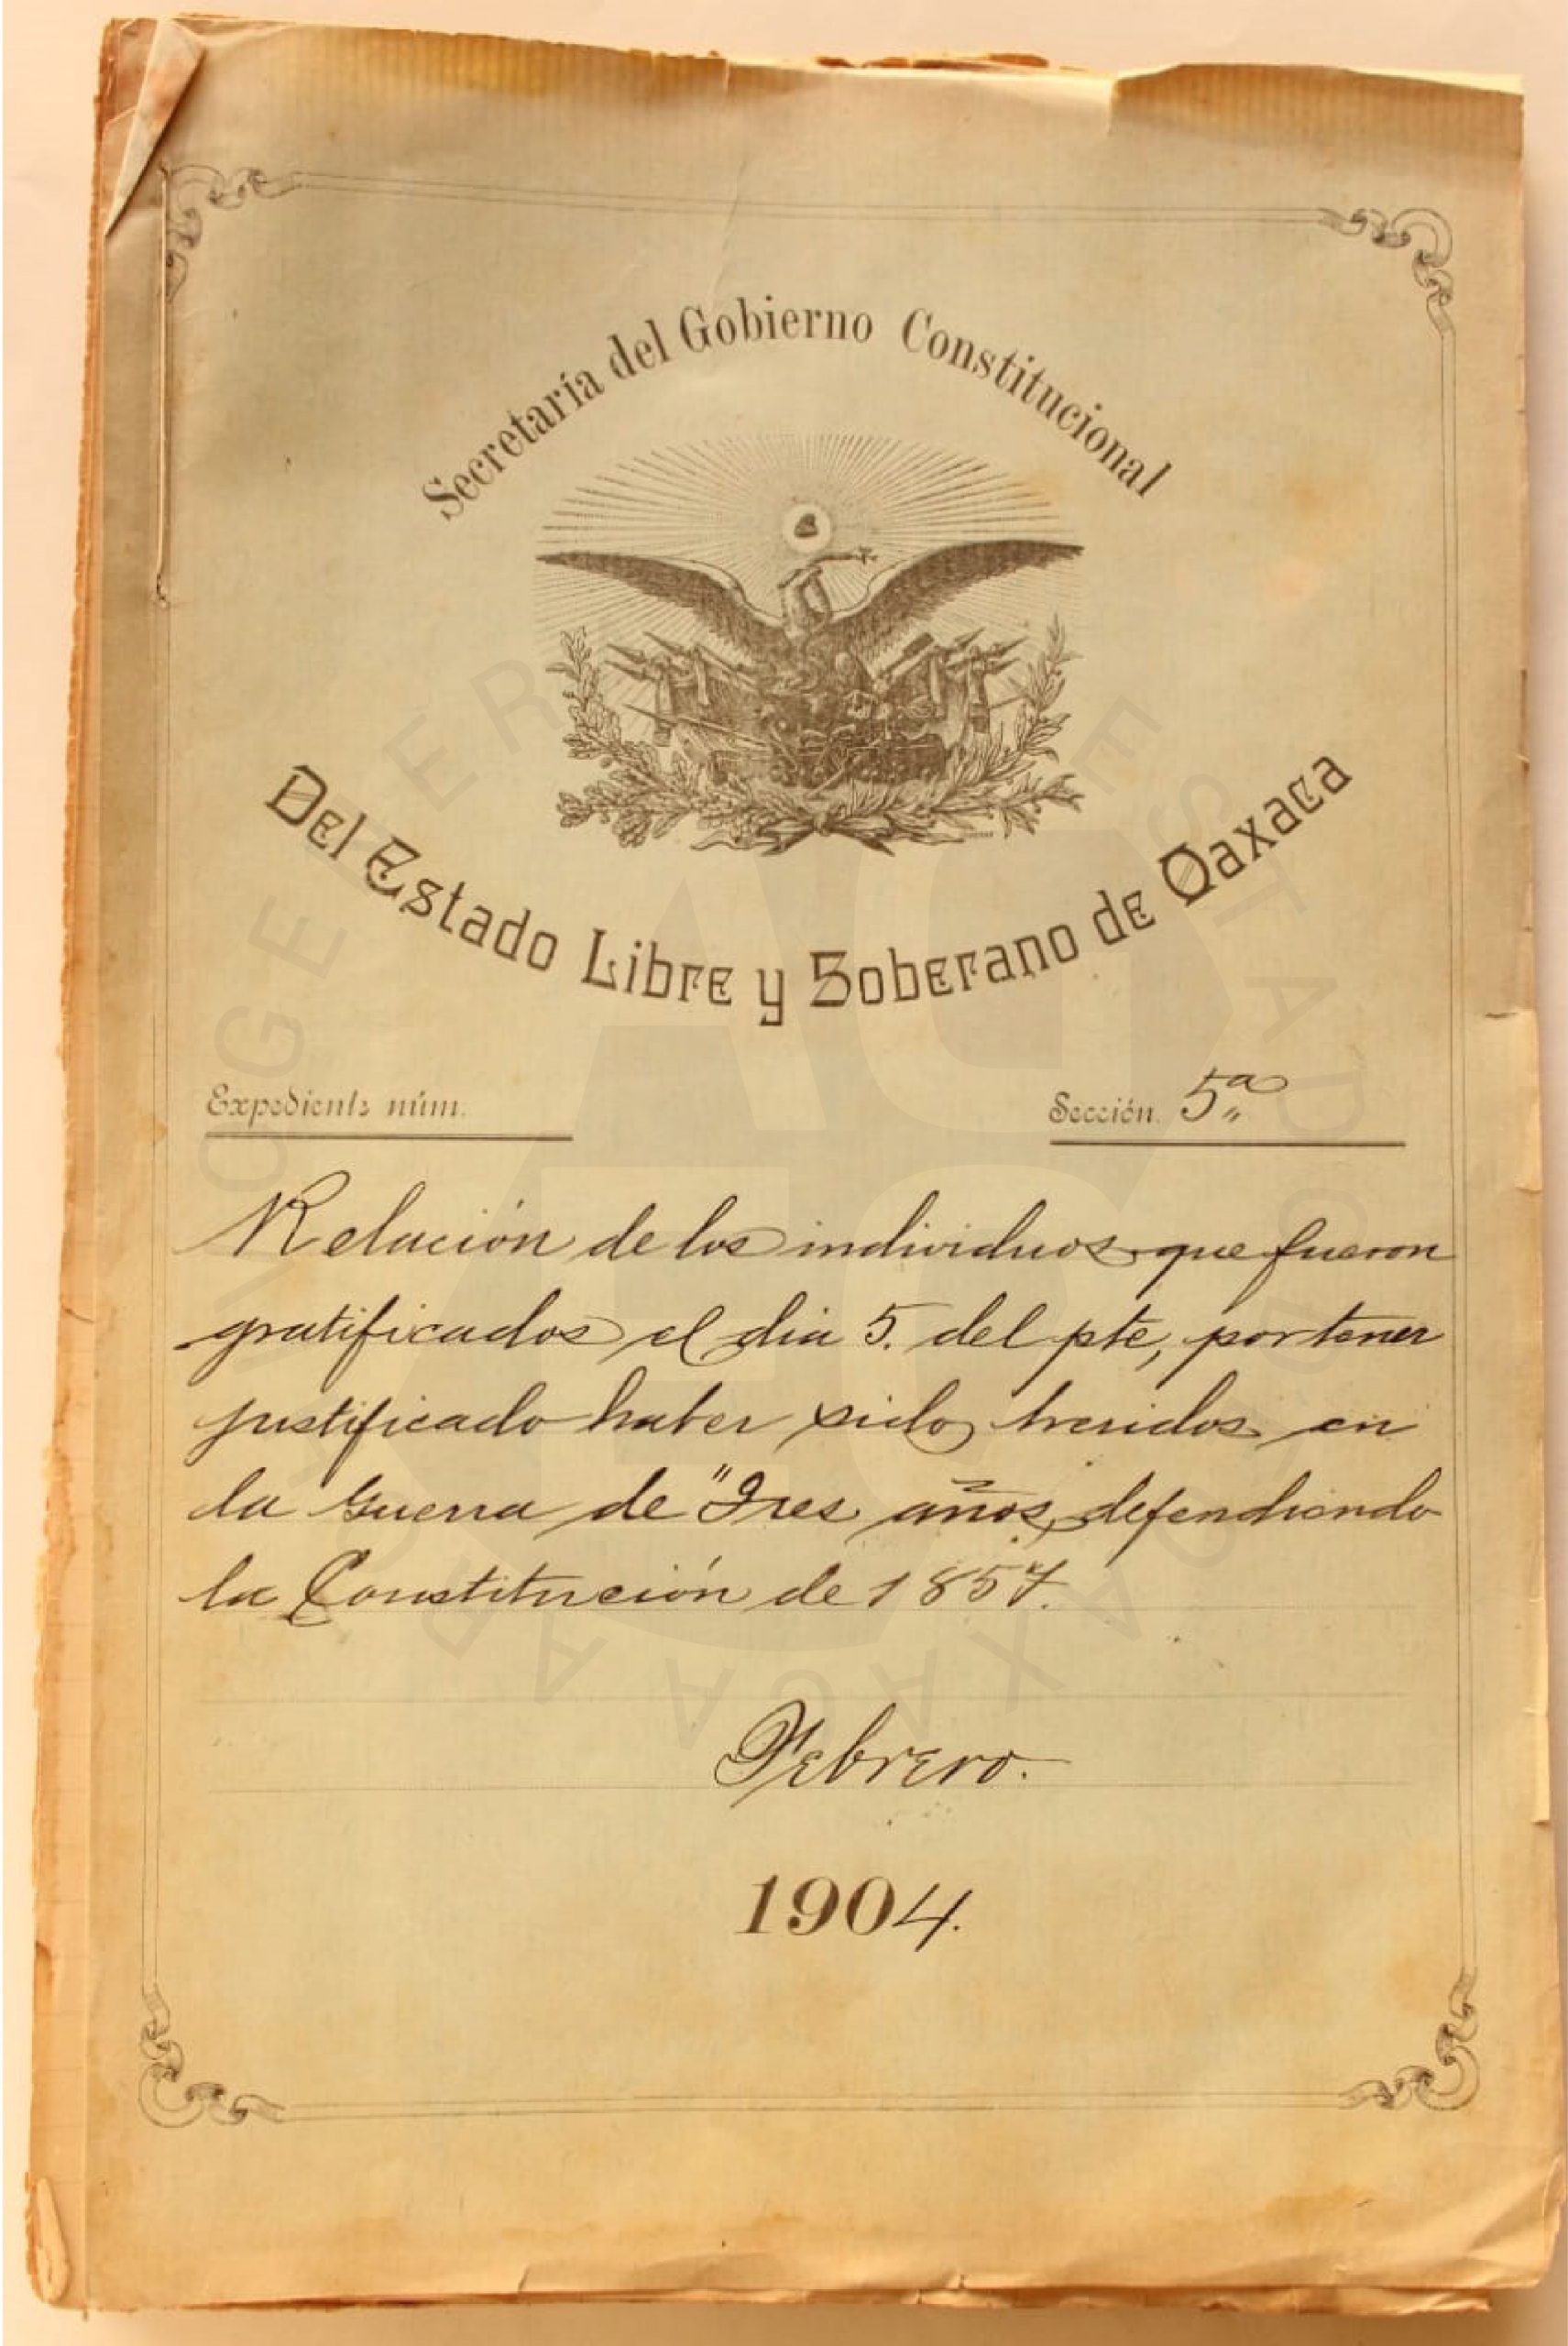 Secretaría del Gobierno Constitucional
Del Estado Libre y Soberano de Oaxaca
Expediente núm.
Sección. 5ª
Relación de los individuos que fueron
gratificados el dia 5. del pte, por tener
justificado haber sido heridos en
la Guerra de "Tres años, defendiendo
la Constitución de 1857.
Febrero.
1904.